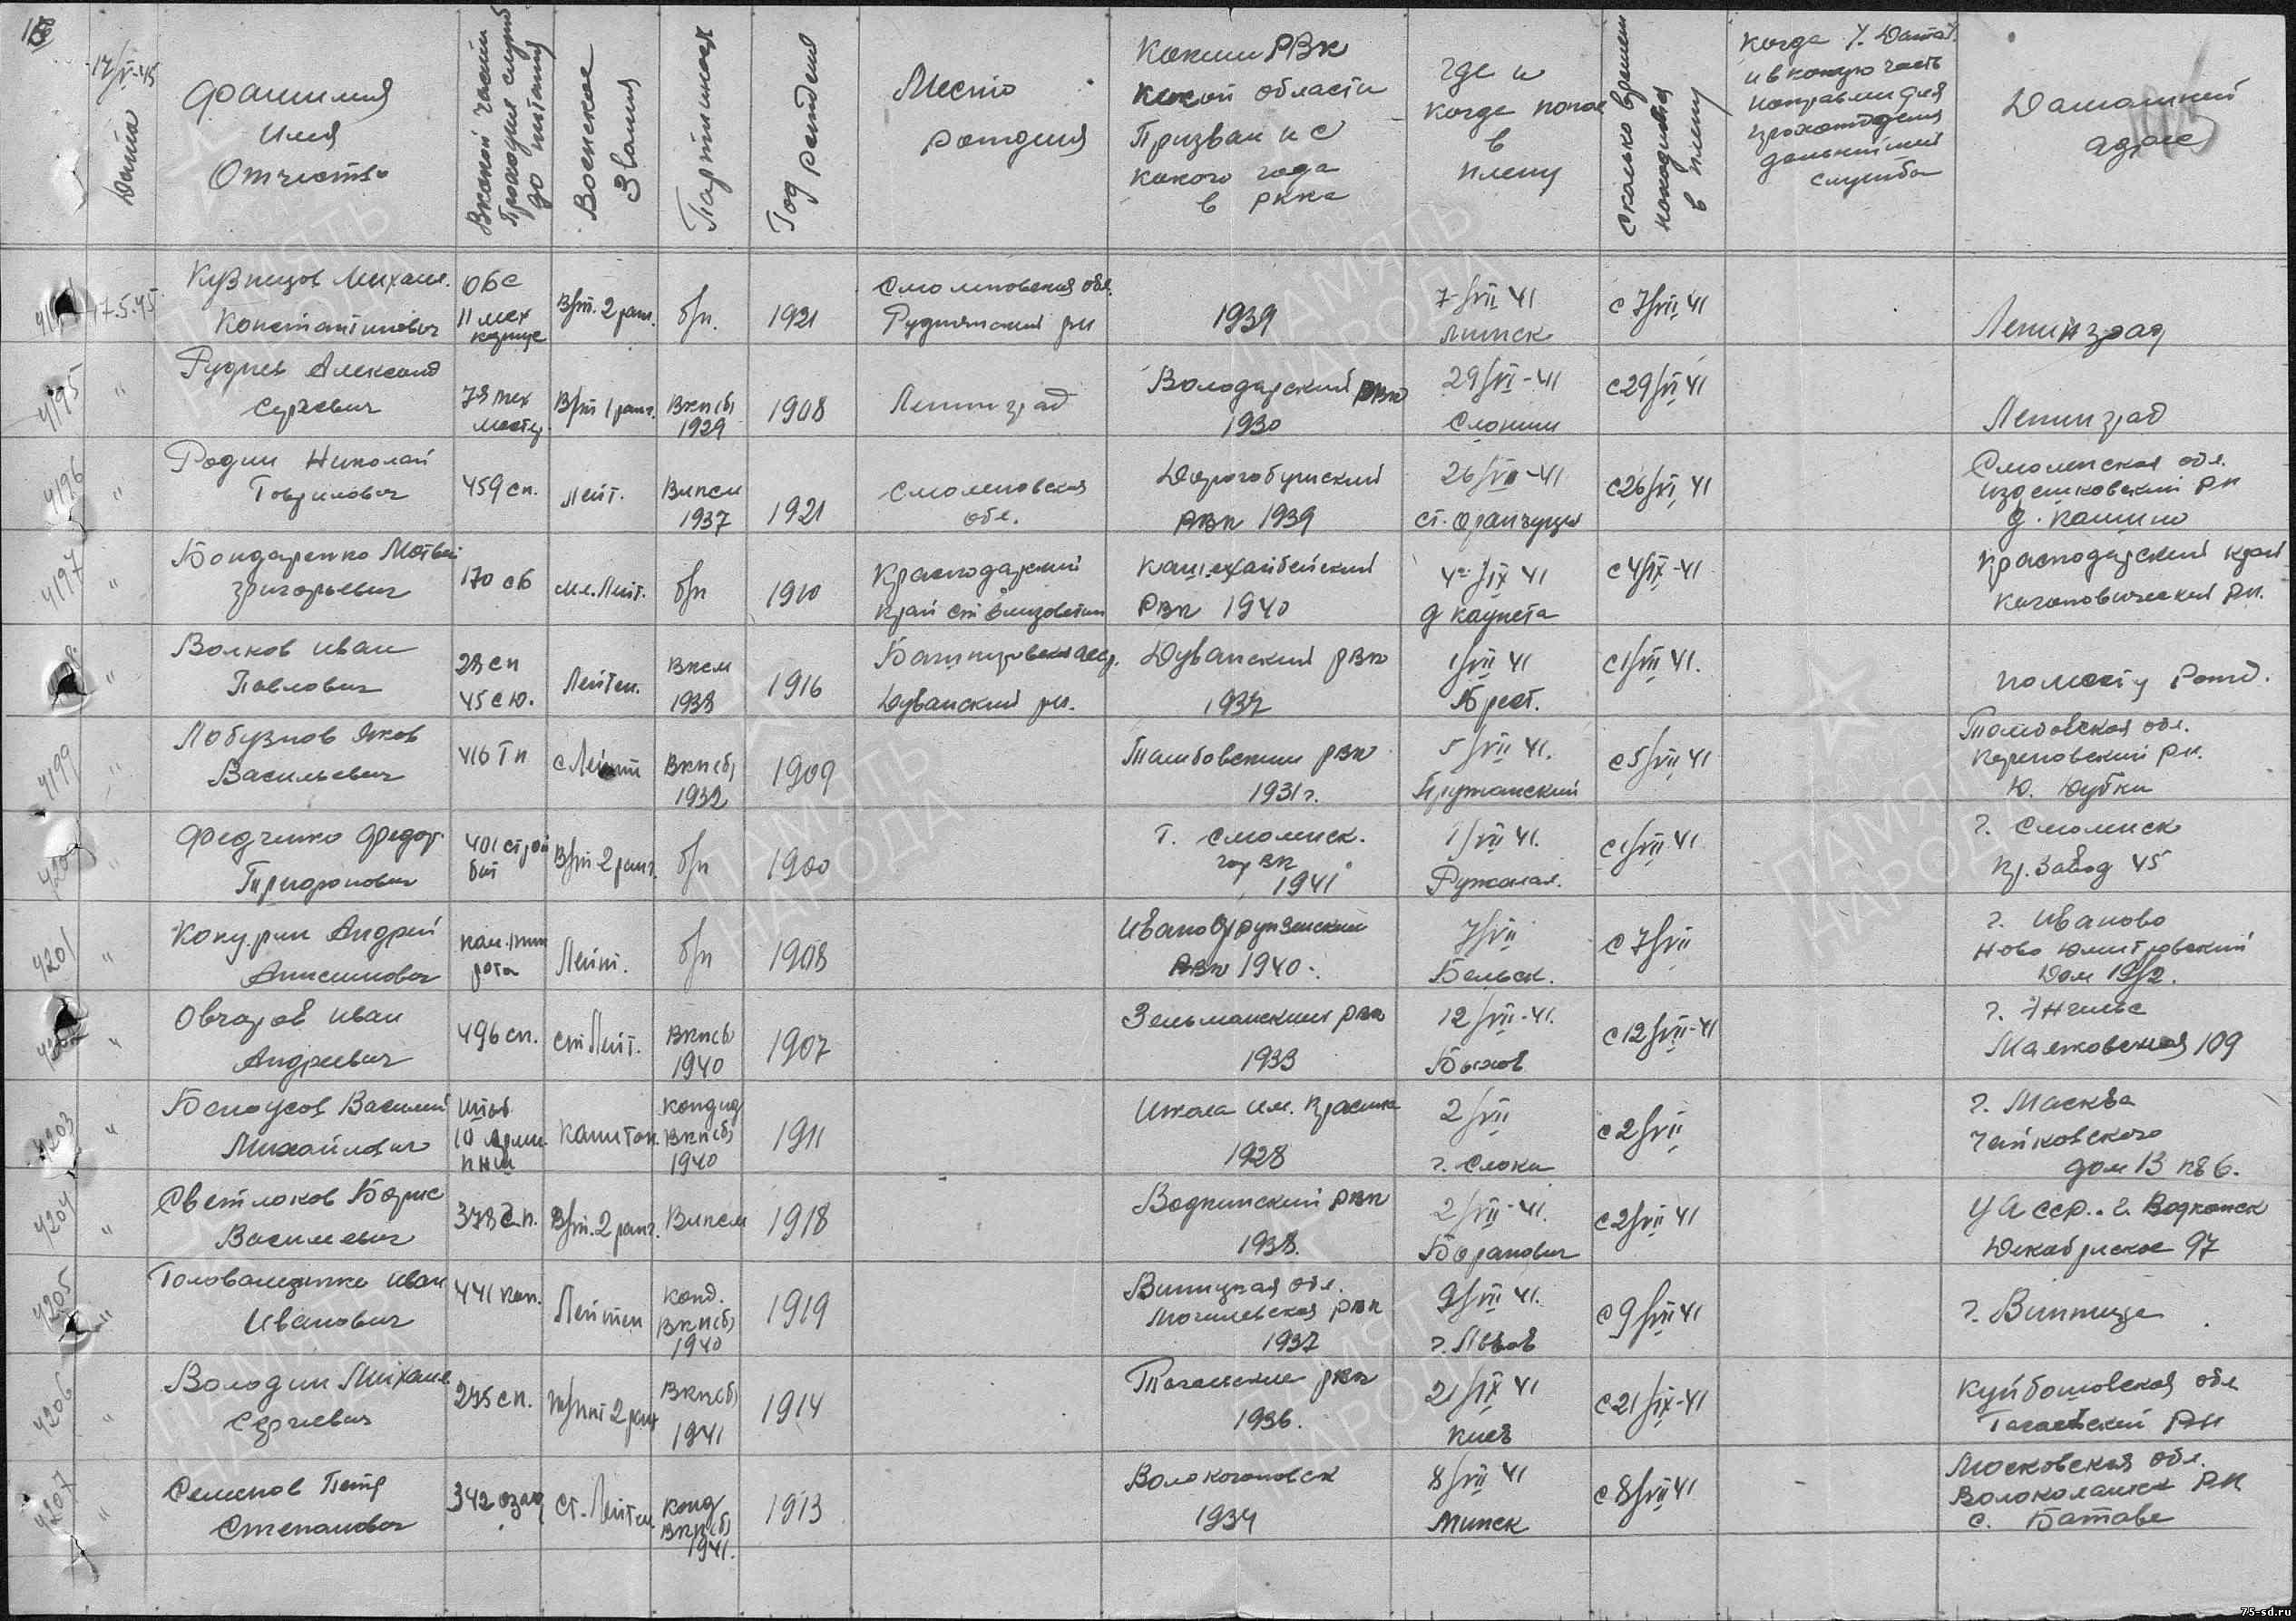 17/V-45
Дата
Фамилия
Имя
Отчество
В какой части
Проходил службу
до пленения
Воинское
Звание
Партийность
Год рождения
Место
рождения
Каким РВК
какой области
Призван и с
какого года
в РККА
Где и
когда попал
в
плену
Сколько времени
находился
в плену
Когда
и в какую часть
направлен для
прохождения
дальнейшей
службы
Домашний
адрес
17.5.45 Кузнецов Михаил Константинович ОБС 11 мех корпус В/т. 2 ранг. б/п. 1921 Смоленовская обл. Руднянский рн 1939 7/VII 41 Минск с 7/VII 41 Ленинград
4195 " Руднев Александ Сергеевич В/т 1 ранг. ВКП(б) 1929 1908 Ленинград Володарский РВК 1930 29/VI-41 Слоним с 29/VI 41 Ленинград
4196 " Родин Николай Гаврилович 459 сп. Лейт. ВЛКСМ 1937 1921 Смоленовская обл. Дорогобужский РВК 1939 26/VII-41 ст. с 26/VI 41 Смоленская обл. Издешковский рн д. Кашино
4197 " Бондаренко Матвей Григорьевич 170 сб мл. Лейт. б/п 1910 Краснодарский край ст Елизоветин РВК 1940 4/IX 41 д с 4/IX-41 Краснодарский край Кагановический рн.
" Волков Иван Павлович 23 сп 45 с ю. Лейтен. ВЛКСМ 1938 1916 Башкировская асср. Дуванский рн. Дуванский РВК 1937 1/VII 41 Брест. с 1/VII 41. по месту Рожд.
4199 " Лобузнов Яков Васильевич 416 Гп с Лейт ВКП(б) 1932 1909 Тамбовским РВК 1931 г. 5/VII 41. Пружанский с 5/VII 41 Тамбовская обл. рн. Ю. Юбки
4200 " Федченко Федор Трифонович 401 строй бат В/т 2 ранг. б/п 1900 Г. Смоленск. гор ВК 1941 1/VII 41. Ружаная. с 1/VII 41 г. Смоленск Кр. Завод 45
4201 " Кокурин Андрей Анисимович рота Лейт. б/п 1908 Ивано Фрунзенский РВК 1940. 7/VII Бельск. с 7/VII г. Иваново Ново Дмитровский Дом 19/2.
" Овчаров Иван Андреевич 496 сп. ст Лейт. ВКП(б) 1940 1907 Зельманским РВК 1933 12/VII-41. Быхов с 12/VII-41 г. Энгельс Маяковская 109
4203 " Белоусов Василий Михайлович Штаб 10 Арми ПНШ капитан. Кандид ВКП(б) 1940 1911 Школа им. Красина 1928 2/VII г. Слока с 2/VII г. Масква Чайковского дом 13 кв 6.
4204 " Светлоков Борис Васильевич 378 сп. В/т. 2 ранг. ВЛКСМ 1918 Водкинский РВК 1938. 2/VII-41. Боранович с 2/VII 41 У А ССР. г. Водкинск Декабрьское 97
4205 " Головащенко Иван Иванович 441 кап. Лейтен Канд. ВКП(б) 1940 1919 Виницкая обл. Могилевская РВК 1937 9/VII 41. г. Львов с 9/VII 41 г. Винница
4206 " Володин Михаил Сергеевич 275 сп. т/инт 2 ранг ВКП(б) 1941 1914 РВК 1936. 21/IX 41 Киев с 21/IX-41 Куйбошовская обл рн
4207 " Семенов Петр Степанович 342 озад Ст. Лейтен Канд ВКП(б) 1941. 1913 1934 8/VII 41 Минск с 8/VII 41 Московская обл. Волоколамск РН с.
ПАМЯТЬ
НАРОДА
75-sd.ru